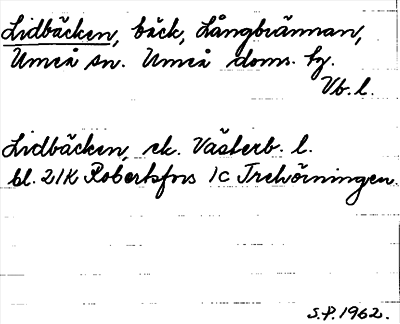 Lidbäcken, bäck, Långbrännan,
Umeå sn. Umeå doms. hg.
Vb. l.
Lidbäcken, ek. Västerb. l.
bl. 21K Robertsfors 1c Trehörningen.
S.P. 1962.